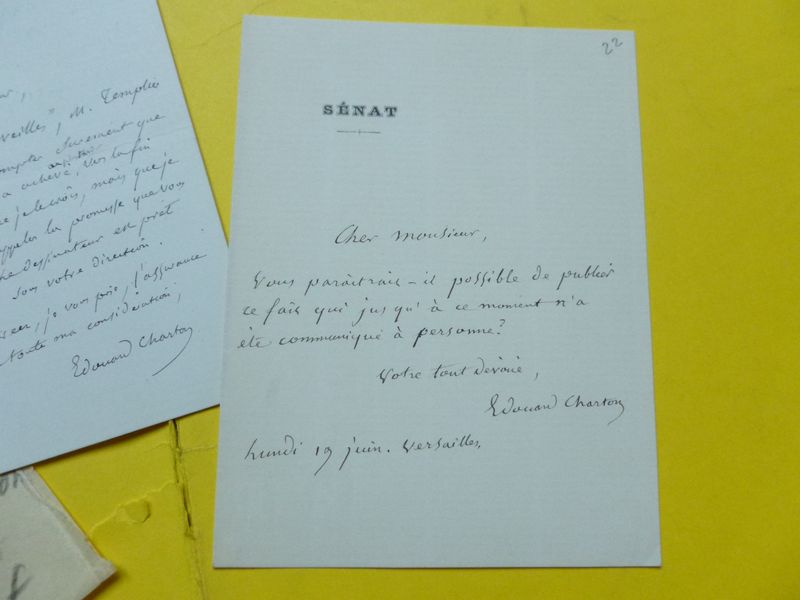 veilles", M. Templier
compter sûrement que
a achevé, vers la fin
je le crois, mais que je
la promesse que vous
dessinateur est prêt
sous votre direction.
je vous prie, j'assurance
toute ma considération,
Edouard Charton
22
SÉNAT
Cher monsieur,
Vous paraîtrait-il possible de publier
ce fait qui jusqu'à ce moment n'a
été communiqué à personne?
Votre tout dévoué,
Edouard Charton
Lundi 19 juin. Versailles.